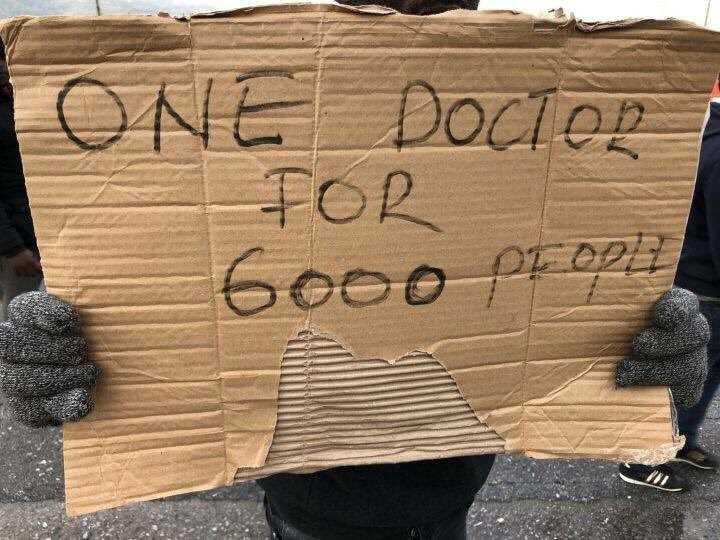 ONE DOCTOR
FOR
6000 PEOPLE